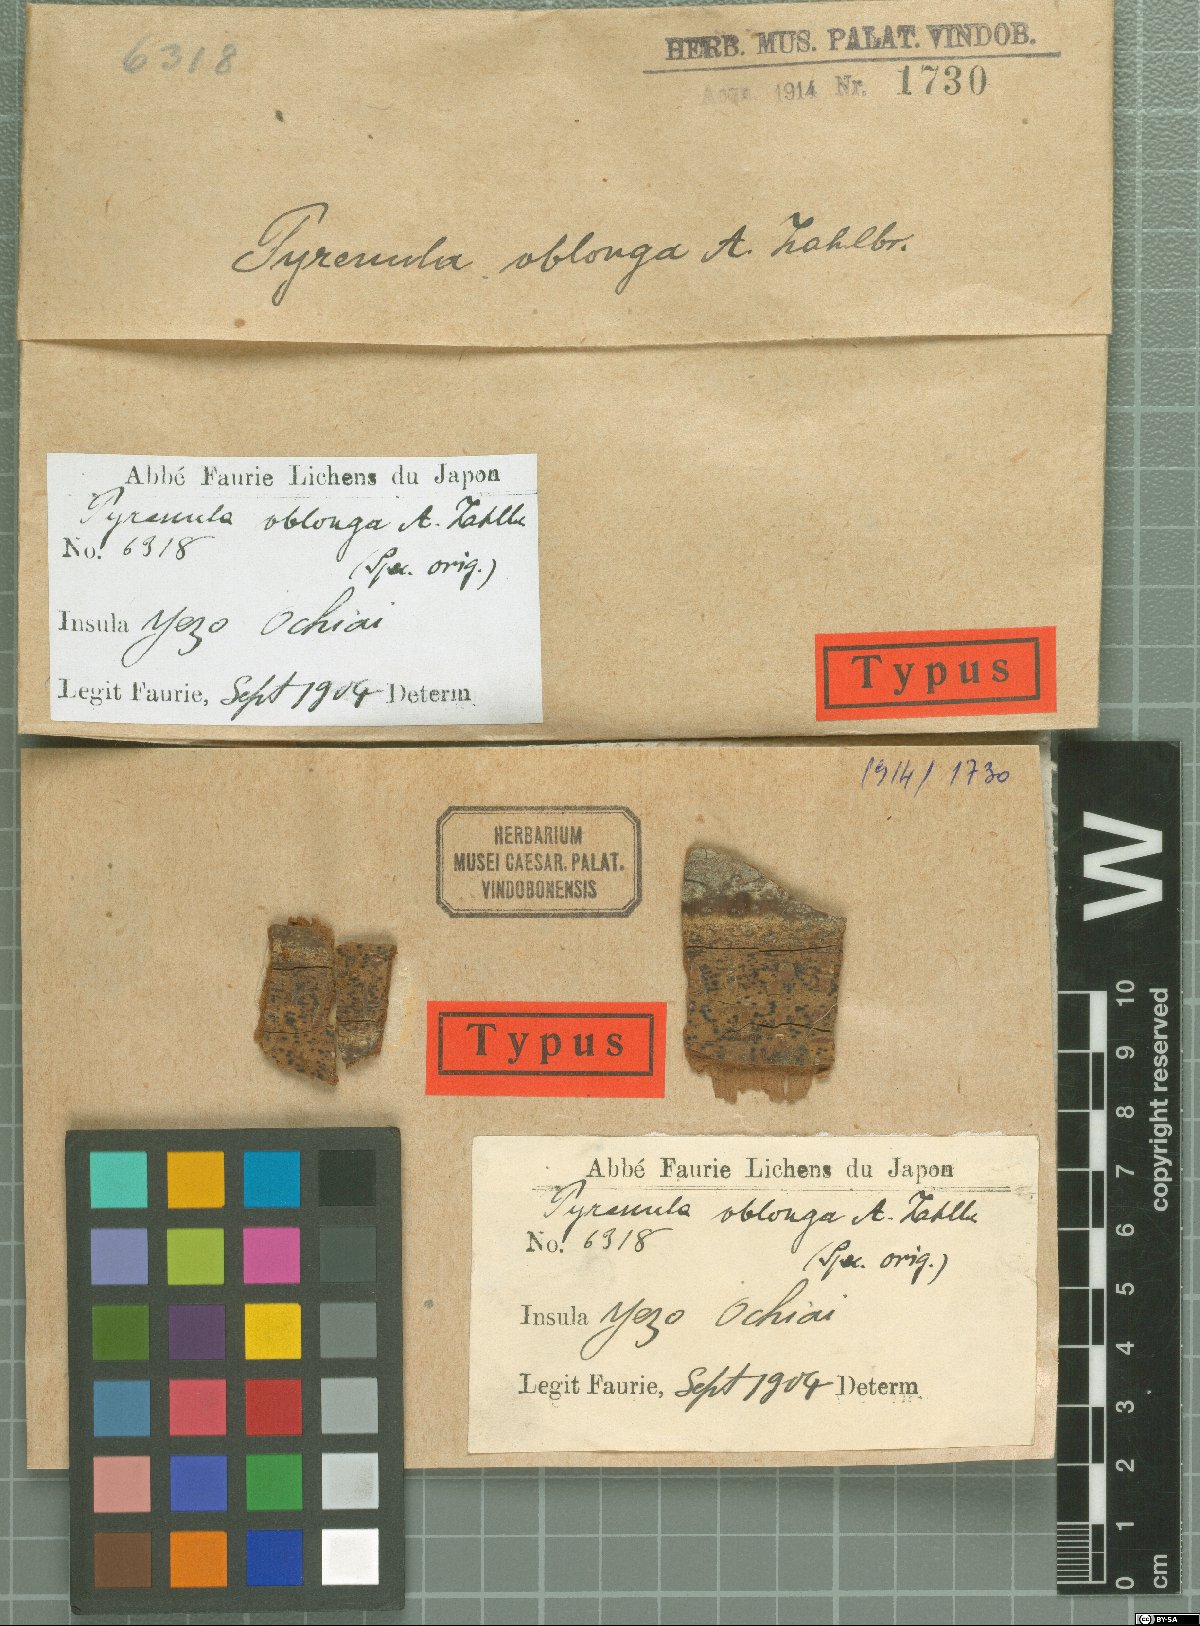 6318
HERB. MUS. PALAT. VINDOB.
Acqu. 1914 Nr. 1730
Pyrenula oblonga A. Zahlbr.
Abbé Faurie Lichens du Japon
Pyrenula oblonga A. Zahlbr
No. 6318
(Spec. orig.)
Insula Yezo Ochiai
Legit Faurie, Sept 1904 Determ
Typus
1914/1730
HERBARIUM
MUSEI CAESAR. PALAT.
VINDOBONENSIS
Typus
Abbé Faurie Lichens du Japon
Pyrenula oblonga A. Zahlbr
No. 6318
(Spec. orig.)
Insula Yezo Ochiai
Legit Faurie, Sept 1904 Determ
W
0 1 2 3 4 5 6 7 8 9 10
cm
copyright reserved
cc BY-SA